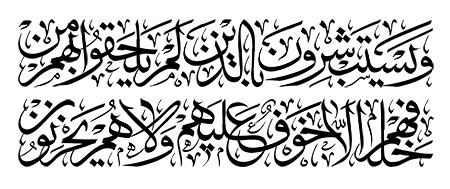 وَيَسْتَبْشِرُونَ بِالَّذِينَ لَمْ يَلْحَقُوا بِهِم مِّنْ
خَلْفِهِمْ أَلَّا خَوْفٌ عَلَيْهِمْ وَلَا هُمْ يَحْزَنُونَ